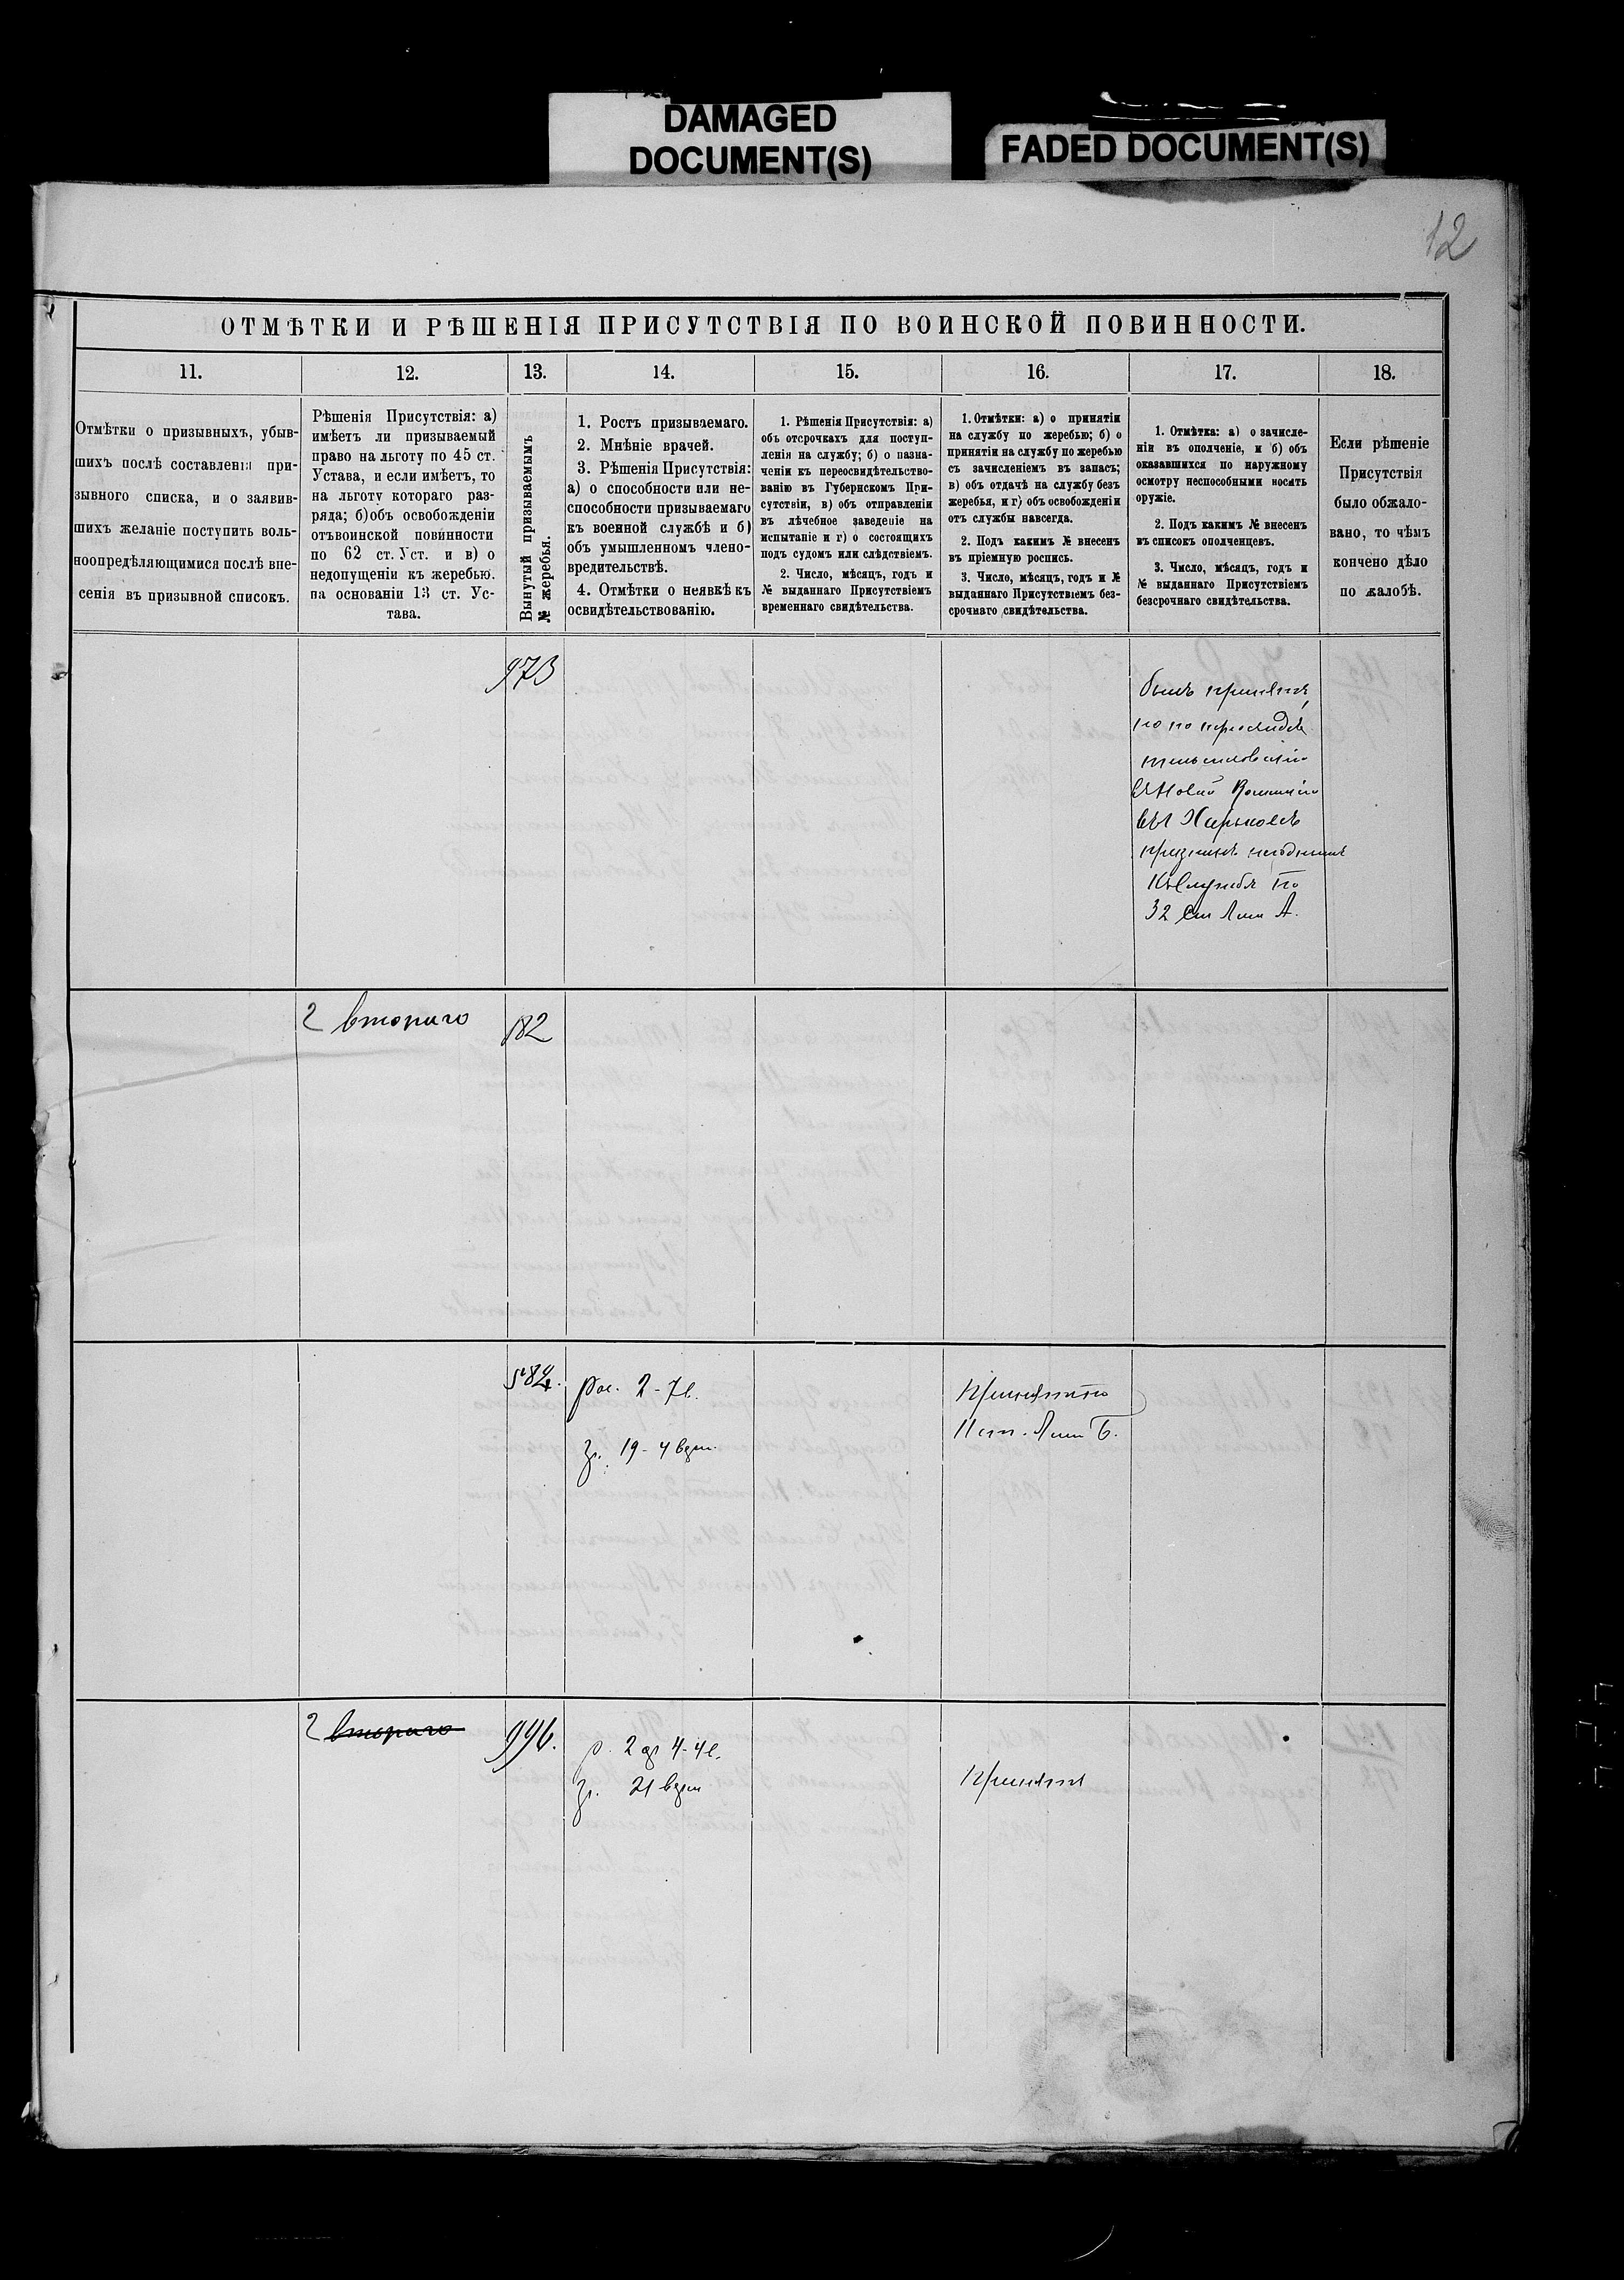 DAMAGED
DOCUMENT(S)
FADED DOCUMENT(S)
12
ОТМѢТКИ И РѢШЕНІЯ ПРИСУТСТВІЯ ПО ВОИНСКОЙ ПОВИННОСТИ.
11.
12.
13.
14.
15.
16.
17.
18.
Отмѣтки о призывныхъ, убыв-
шихъ послѣ составленія при-
зывного списка, и о заявив-
шихъ желаніе поступить воль-
ноопредѣляющимися послѣ вне-
сенія въ призывной списокъ.
Рѣшенія Присутствія: а)
имѣетъ ли призываемый
право на льготу по 45 ст.
Устава, и если имѣетъ, то
на льготу котораго раз-
ряда; б)объ освобожденіи
отъвоинской повинности
по 62 ст. Уст. и в) о
недопущеніи къ жеребью.
на основаніи 13 ст. Ус-
тава.
Вынутый призываемымъ
№ жеребья.
1. Ростъ призываемаго.
2. Мнѣніе врачей.
3. Рѣшенія Присутствія:
а) о способности или не-
способности призываемаго
къ военной службѣ и б)
объ умышленномъ члено-
вредительствѣ.
4. Отмѣтки о неявкѣ къ
освидѣтельствованію.
1. Рѣшенія Присутствія: а)
объ отсрочкахъ для поступ-
ленія на службу; б) о назна-
ченіи къ переосвидѣтельство-
ванію въ Губернскомъ При-
сутствіи, в) объ отправленіи
въ лѣчебное заведеніе на
испытаніе и г) о состоящихъ
подъ судомъ или слѣдствіемъ.
2. Число, мѣсяцъ, годъ и
№ выданнаго Присутствіемъ
временнаго свидѣтельства.
1. Отмѣтки: а) о принятіи
на службу по жеребью; б) о
принятіи на службу по жеребью
съ зачисленіемъ въ запасъ;
в) объ отдачѣ на службу безъ
жеребья, и г) объ освобожденіи
отъ службы навсегда.
2. Подъ какимъ № внесенъ
въ пріемную роспись.
3. Число, мѣсяцъ, годъ и №
выданнаго Присутствіемъ без-
срочнаго свидѣтельства.
1. Отмѣтка: а) о зачисле-
ніи въ ополченіе, и б) объ
оказавшихся по наружному
осмотру неспособными носить
оружіе.
2. Подъ какимъ № внесенъ
въ списокъ ополченцевъ.
3. Число, мѣсяцъ, годъ и
№ выданнаго Присутствіемъ
безсрочнаго свидѣтельства.
Если рѣшеніе
Присутствія
было обжало-
вано, то чѣмъ
кончено дѣло
по жалобѣ.
973
былъ принятъ,
но по переосвидѣ
тельствованію
Комисіи
въ Харьковѣ
признанъ негоднымъ
къ службѣ по
32 ст лит А.
2 втораго
182
584.
рос. 2-7 в.
гр. 19-4 верш.
Принятъ по
лит Б.
2 втораго
996.
р. 2 ар 4-4 в.
гр. 21 верш
Принятъ